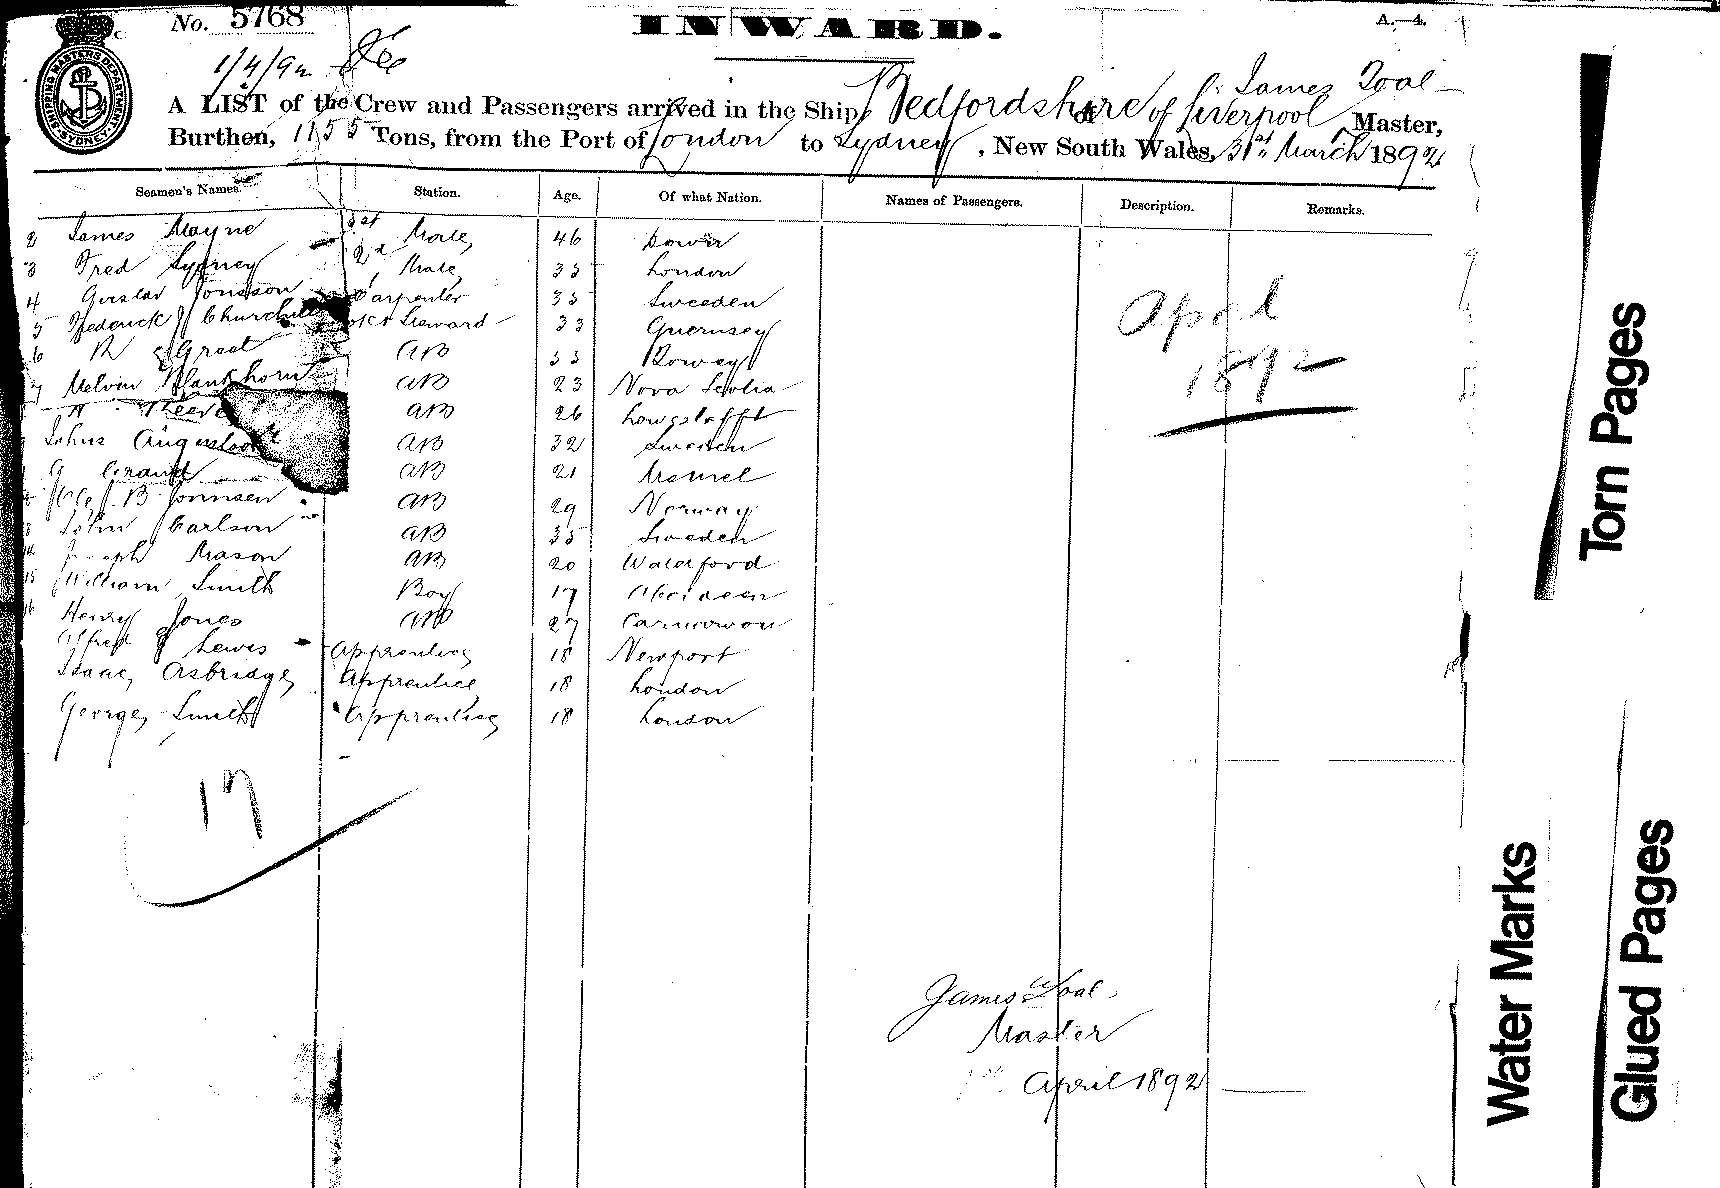 No. 5768
INWARD.
A.—4.
SHIPPING MASTERS DEPARTMENT SYDNEY
1/4/92
A LIST of the Crew and Passengers arrived in the Ship Bedfordshire of Liverpool James Toal Master,
Burthen, 1155 Tons, from the Port of London to Sydney, New South Wales, 31st March 1892
Seamen's Names. Station. Age. Of what Nation. Names of Passengers. Description. Remarks.
2 James Mayne 1st Mate 46
3 Fred Sydney 2d Mate 33 London
4 Gustav Jonsson Carpenter 35 Sweeden
5 Frederick J Churchill Steward 33 Guernsey
6 AB 33
7 Melvin Blankhorn AB 23 Nova Scotia
AB 26 Lowestofft
Johns AB 32 Sweden
G AB 21
B Jonnsen AB 29 Norway
John Carlson AB 35 Sweeden
14 Joseph Mason AB 20 Waterford
15 William Smith Boy 17 Aberdeen
16 Henry Jones AB 27 Carnarvon
Alfred J Lewis Apprentice 18 Newport
Isaac Asbridge Apprentice 18 London
George Smith Apprentice 18 London
April
1892
17
James Toal.
Master
1st April 1892
Torn Pages
Water Marks
Glued Pages